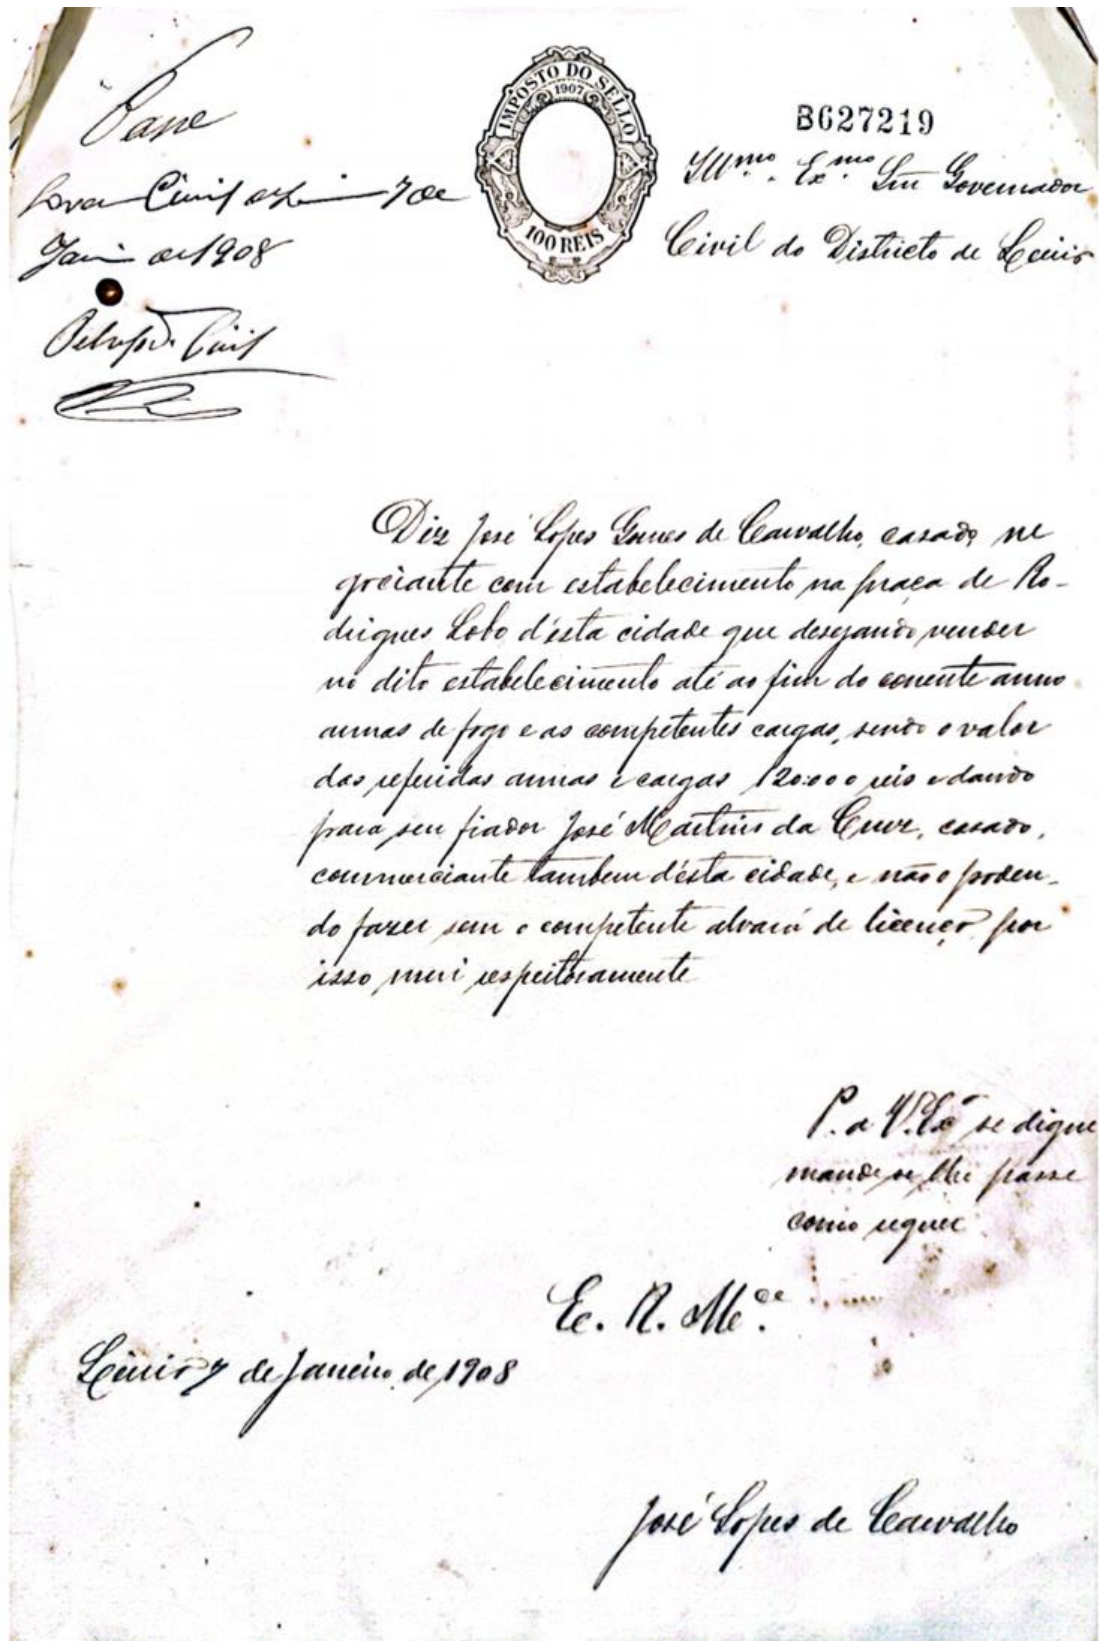 Passe
Civil 7 de
1908
Civil
IMPOSTO DO SELLO
1907
100 REIS
B627219
Illmo. Exmo. Snr Governador
Civil do Districto de Leiria
Diz José Lopes Gomes de Carvalho, casado, ne
gociante com estabelecimento na praça de Ro-
drigues Lobo d'ésta cidade que desejando vender
no dito estabelecimento até ao fim do corrente anno
armas de fogo e as competentes cargas, sendo o valor
das referidas armas e cargas 120:000 reis e dando
para seu fiador José Martins da Cruz, casado,
commerciante tambem d'ésta cidade, e não o poden-
do fazer sem o competente alvará de licença por
isso mui respeitosamente
P. a V. Exa se digne
mande se lhe passe
como requer
E. R. Mce.
Leiria 7 de Janeiro de 1908
José Lopes de Carvalho